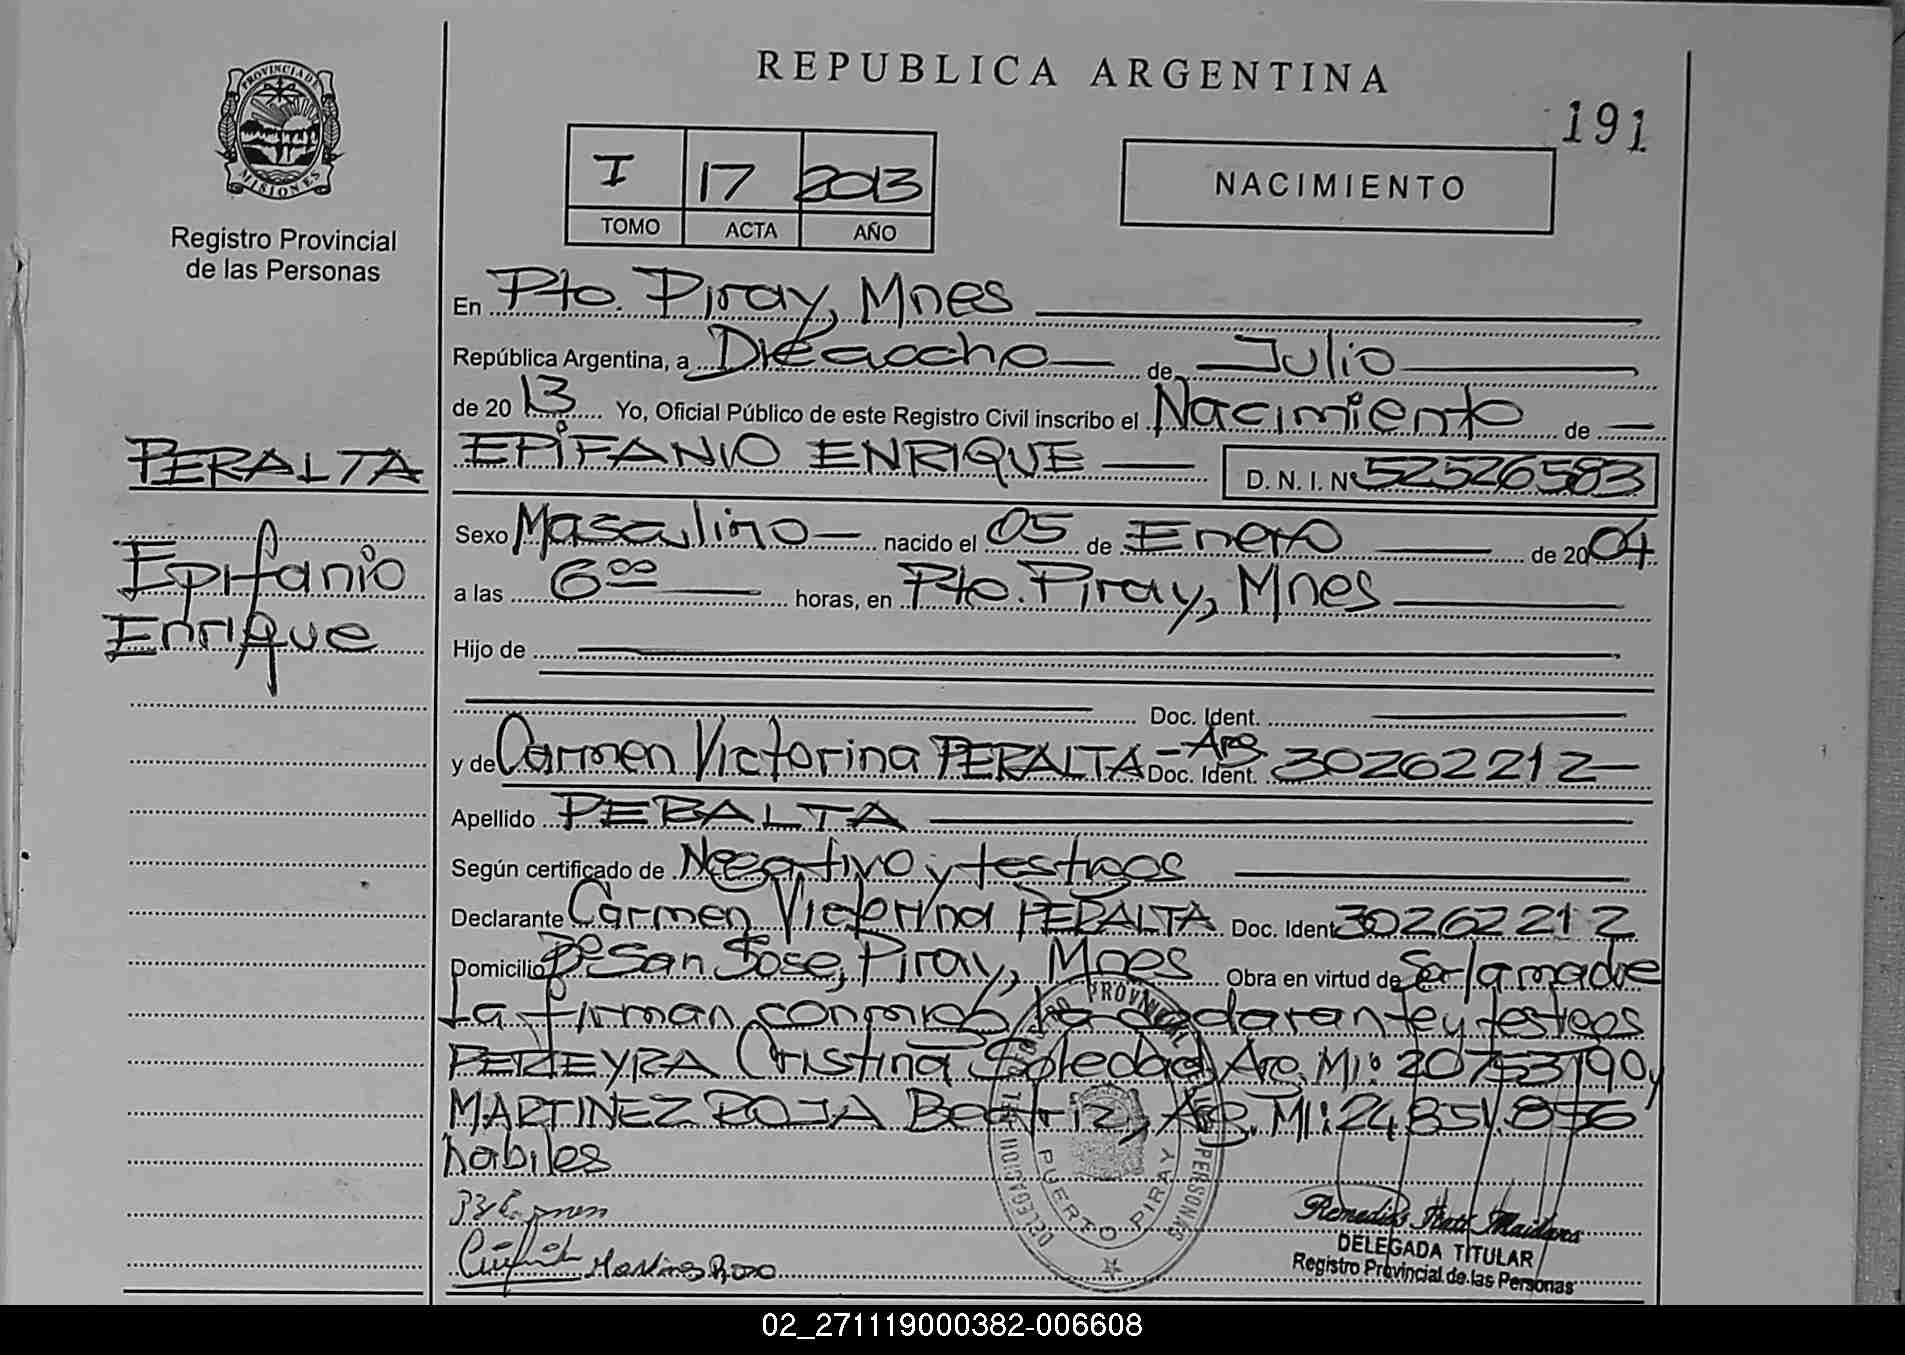 REPUBLICA ARGENTINA
191
PROVINCIA DE
MISIONES
Registro Provincial
de las Personas
I 17 2013
TOMO ACTA AÑO
NACIMIENTO
En Pto. Piray, Mnes
República Argentina, a Dieciocho de Julio
de 20 13 Yo, Oficial Público de este Registro Civil inscribo el Nacimiento de
PERALTA
EPIFANIO ENRIQUE D. N. I. Nº 52526583
Epifanio
Enrique
Sexo Masculino nacido el 05 de Enero de 2004
a las 6⁰⁰ horas, en Pto. Piray, Mnes
Hijo de
Doc. Ident.
y de Carmen Victorina PERALTA - Arg. Doc. Ident. 30262212
Apellido PERALTA
Según certificado de Negativo y testigos
Declarante Carmen Victorina PERALTA Doc. Ident 30262212
Domicilio Bº San Jose, Piray, Mnes Obra en virtud de Ser la madre
La firman conmigo, la declarante y testigos
PEREYRA Cristina Soledad, Arg. MI: 20753190, y
MARTINEZ ROJA Beatriz, Arg. MI: 24.851.856
habiles
PUERTO PIRAY
DELEGADA TITULAR
Registro Provincial de las Personas
02_271119000382-006608